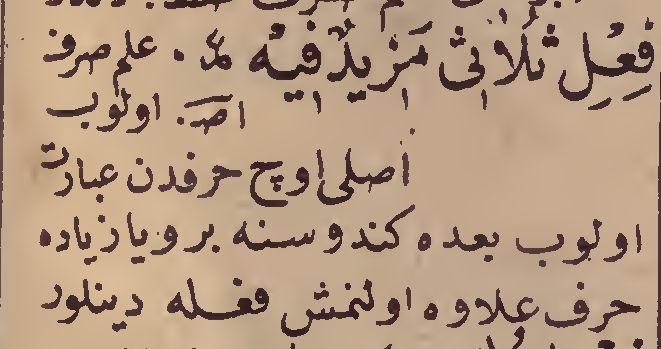 فِعْلِ ثُلَاثِیْ مَزِیدٌ فِیهْ . علم صرف
اولوب
اصلی اوچ حرفدن عبارت
اولوب بعده کندوسنه بر ویا زیاده
حرف علاوه اولنمش فعله دینلور